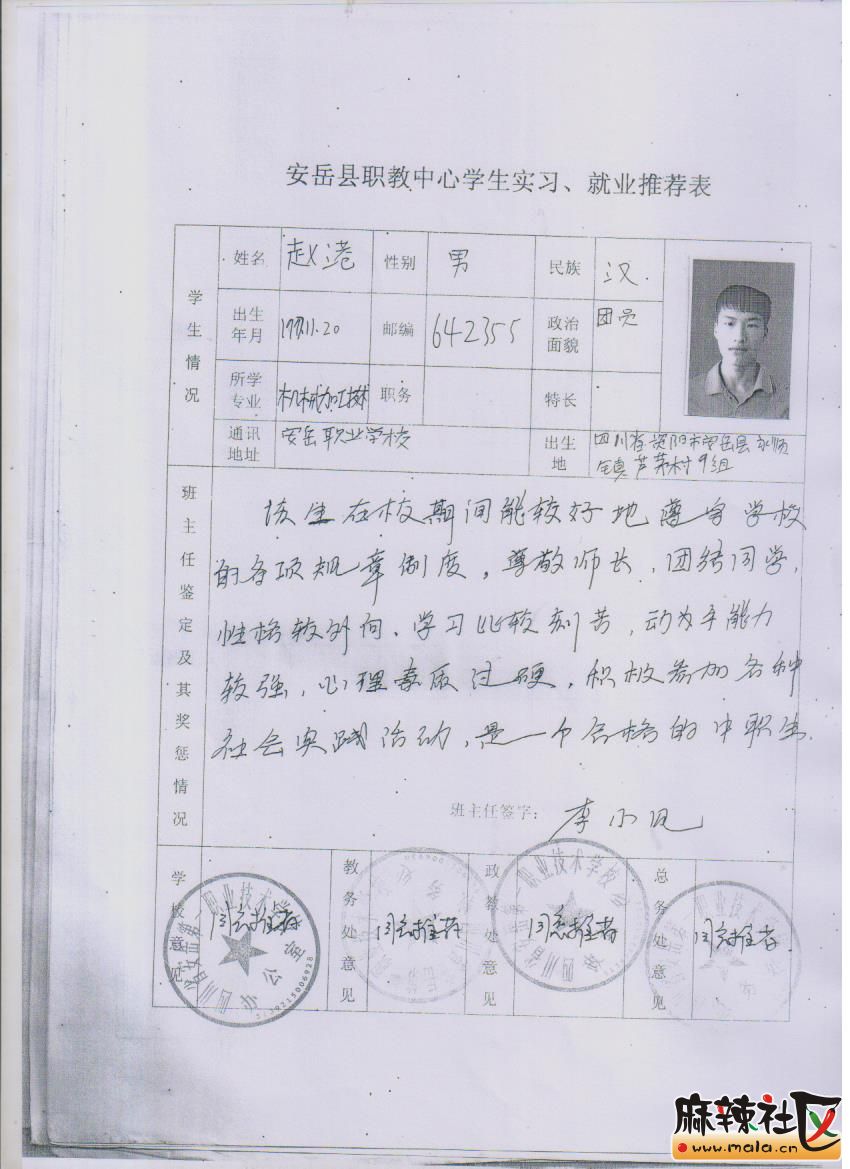 安岳县职教中心学生实习、就业推荐表
学生情况
姓名 赵港 性别 男 民族 汉
出生年月 11.20 邮编 642355 政治面貌 团员
所学专业 机械加工技术 职务 特长
通讯地址 安岳职业学校 出生地 四川省资阳市安岳县永顺
镇芦茅村9组
班主任鉴定及其奖惩情况
该生在校期间能较好地遵守学校
的各项规章制度，尊敬师长，团结同学，
性格较外向、学习比较刻苦，动为手能力
较强，心理素质过硬，积极参加各种
社会实践活动，是一个合格的中职生.
班主任签字：李小凤
学校意见 同意推荐 教务处意见 同意推荐 政教处意见 同意推荐 总务处意见 同意推荐
职业技术学
办公室
职业技术学校
麻辣社区
www.mala.cn